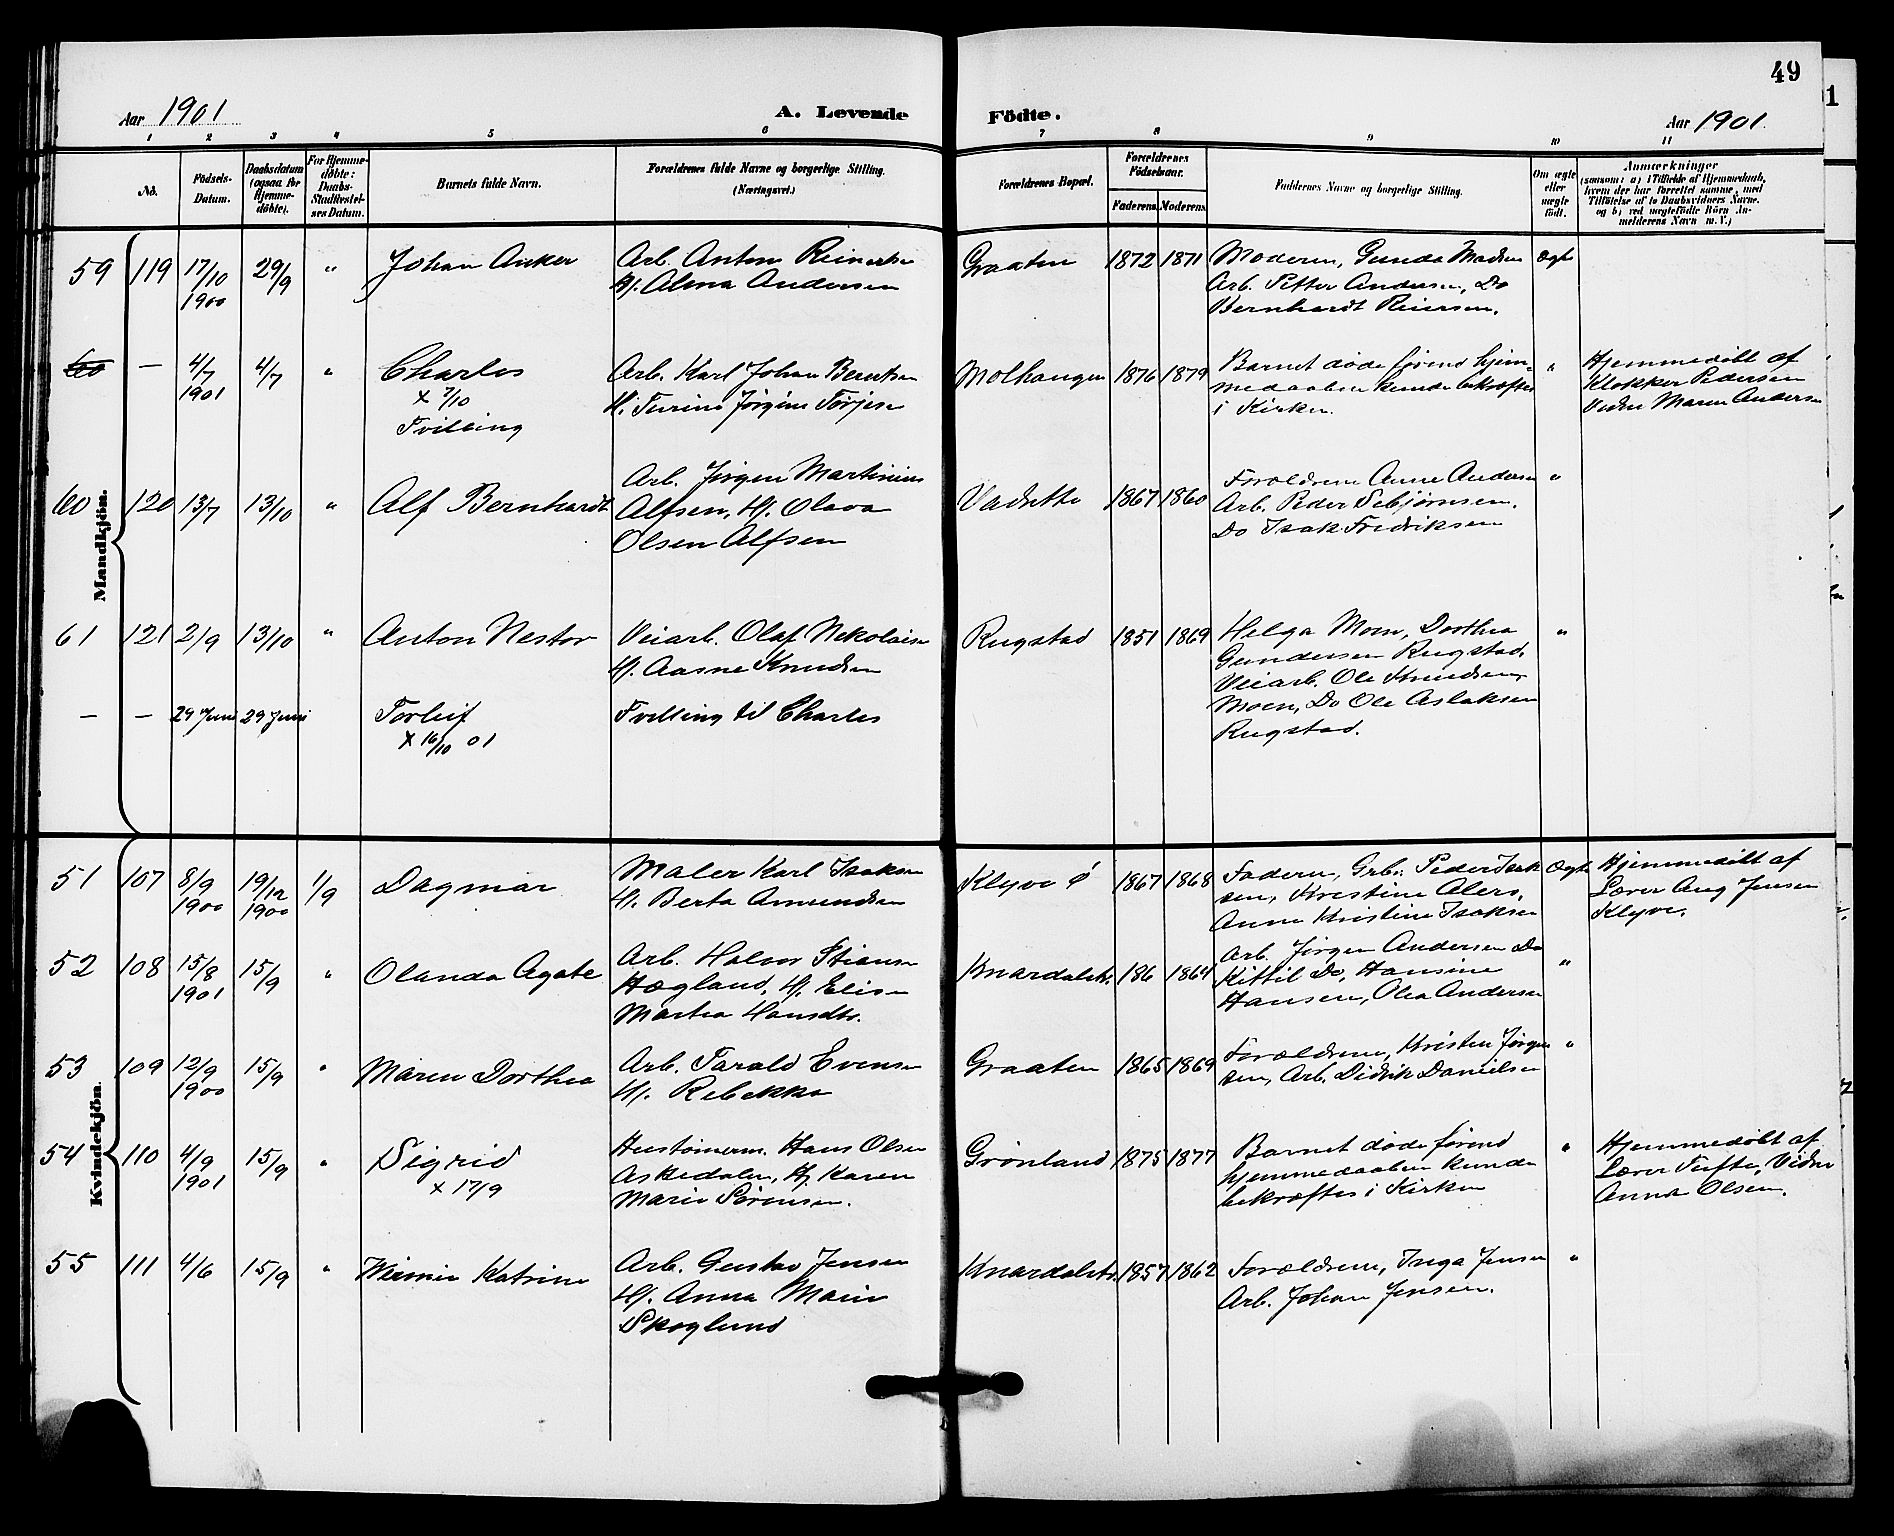 49
Aar 1901
A. Levende Födte.
Aar 1901.
1 2 3 4 5 6 7 8 9 10 11
No.
Födsels-
Datum.
Daabsdatum
(ogsaa for
Hjemme-
döbte).
For Hjemme-
døbte:
Daabs-
Stadfæstel-
ses Datum.
Barnets fulde Navn.
Forældrenes fulde Navne og borgerlige Stilling.
(Næringsvei.)
Forældrenes Bopæl.
Forældrenes
Födselsaar.
Faderens. Moderens.
Faddernes Navne og borgerlige Stilling.
Om ægte
eller
uægte
født.
Anmærkninger
(saasom: a) i Tilfælde af Hjemmedaab,
hvem der har forrettet samme, med
Tilföielse af to Daabsvidners Navne.
og b) ved uægtefödte Börn An-
melderens Navn m. V.)
Mandkjön.
59 119 17/10 1900 29/9 " Johan Anker
Arb. Anton Reinertsen
H. Alma Andersen
Graaten 1872 1871
Moderen, Gunda Madsen
Arb. Petter Andersen, Do
Bernhardt Reiersen.
Ægte
60 — 4/7 1901 4/7 " Charles
x 7/10
Tvilling
Arb. Karl Johan Berntsen
H. Turine Jørgine Torjesen
Molhaugen 1876 1879
Barnet døde førend hjem-
medaaben kunde bekræftes
i Kirken.
"
Hjemmedøbt af
Klokker Pedersen
Vidne Maren Andersen
60 120 13/7 13/10 " Alf Bernhardt
Arb. Jørgen Martinius
Alfsen, H. Olava
Olsen Alfsen
Vadrette 1867 1860
Forældrene Anne Andersen
Arb. Peder Sebjørnsen.
Do Isak Fredriksen
"
61 121 2/9 13/10 " Anton Nestor
Veiarb. Olaf Nikolaisen
H. Aasne Knudsen
Rugstad 1851 1869
Helga Moen, Dorthea
Gundersen Rugstad.
Veiarb. Ole Knudsen
Moen, Do Ole Aslaksen
Rugstad.
"
— — 29 Juni 29 Juni Torleif
x 16/10 01
Tvilling til Charles
Kvindekjön.
51 107 8/9 1900 19/12 1900 1/9 Dagmar
Maler Karl Isaksen
H. Berta Amundsen
Klyve Ø 1867 1868
Faderen, Grb. Peder Isak
sen, Kristine Alers,
Anne Kristine Isaksen
Ægte
Hjemmedøbt af
Lærer Aug Jensen
Klyve.
52 108 15/8 1901 15/9 " Olanda Agate
Arb. Halvor Stiansen
Høgland, H. Elise
Martea Hansdtr.
Knardalstr. 186 1864
Arb. Jørgen Andersen Do
Kittil Do, Hansine
Hansen, Olea Andersen
"
53 109 12/9 1900 15/9 " Maren Dorthea
Arb. Tarald Evensen
H. Rebekka
Graaten 1865 1869
Forældrene, Kristen Jørgen
sen, Arb. Didrik Danielsen
"
54 110 4/9 1901 15/9 " Sigrid
x 17/9
Hustømerm. Hans Olsen
Askedalen, H. Karen
Marie Sørensen.
Grønland 1875 1877
Barnet døde førend
hjemmedaaben kunde
bekræftes i Kirken
"
Hjemmedøbt af
Lærer Tufte, Vidne
Anna Olsen.
55 111 4/6 15/9 " Wermie Katrine
Arb. Gustav Jensen
H. Anna Marie
Skoglund
Knardalstr. 1857 1862
Forældrene, Inga Jensen
Arb. Johan Jensen.
"